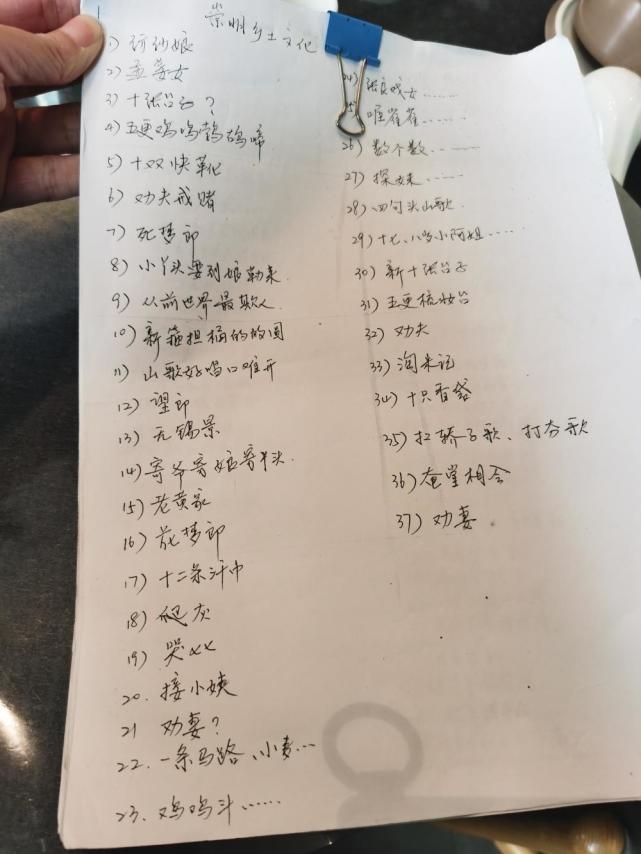 1
崇明乡土文化
1) 纺纱娘
2) 孟姜女
3) 十张台子?
4) 五更鸡鸣鹁鸪啼
5) 十双快靴
6) 劝夫戒赌
7) 死梦郎
8) 小丫头要到娘勒来
9) 从前世界最欺人
10) 新箍担桶的的圆
11) 山歌好唱口难开
12) 望郎
13) 无锡景
14) 寄爷寄娘寄丫头
15) 老黄家
16) 梦郎
17) 十二条汗巾
18) 爬灰
19) 哭××
20. 接小姨
21 劝妻?
22. 一条马路、小麦…
23. 鸡鸣斗……
24) 张良戏女……
25) 唯雀雀……
26) 数个数……
27) 探妹……
28) 四句头山歌
29) 十七、八岁小阿姐……
30) 新十张台子
31) 五更梳妆台
32) 劝夫
33) 淘米记
34) 十只香袋
35) 扛轿子歌、打夯歌
36) 庵堂相会
37) 劝妻